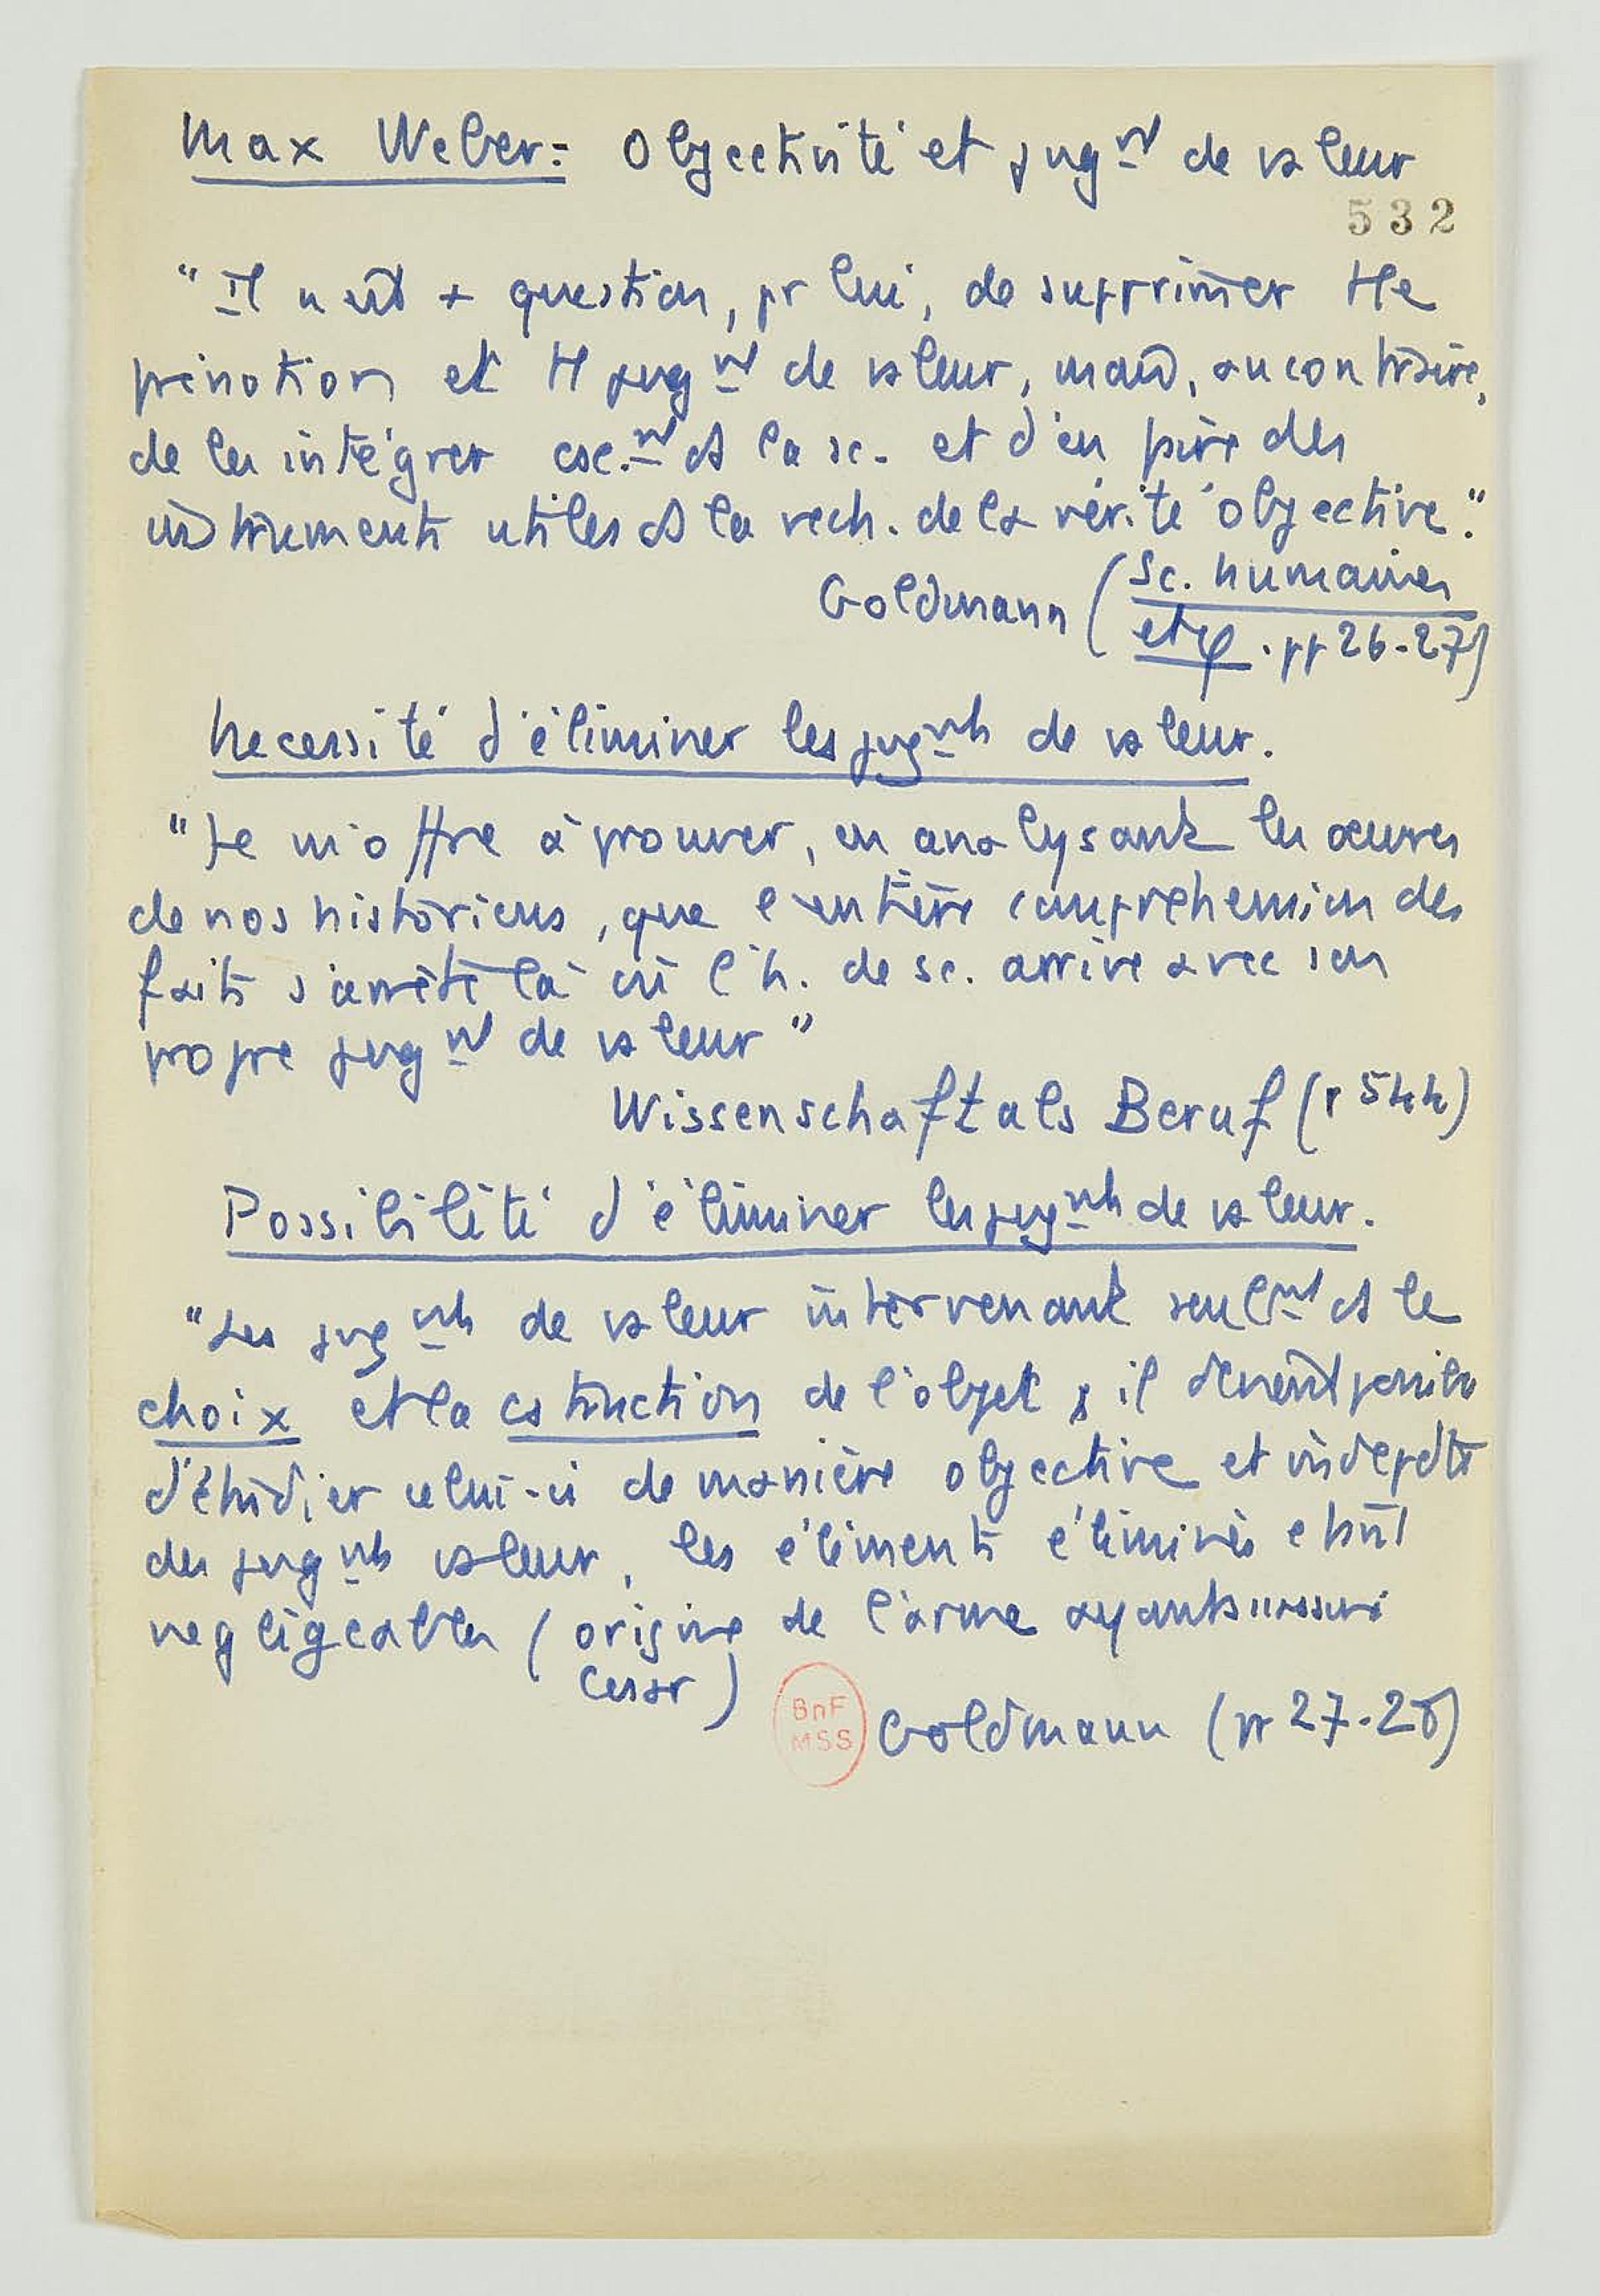 Max Weber: Objectivité et jugnt de valeur
532
"Il n'est + question, pr lui, de supprimer tte
prénotion et tt jugnt de valeur, mais, au contraire,
de les intégrer csc.nt ds la sc. et d'en faire des
instruments utiles ds la rech. de la vérité objective."
Goldmann (Sc. humaines
et φ. pp 26-27)
Necessité d'éliminer les jugnts de valeur.
"Je m'offre à prouver, en analysant les œuvres
de nos historiens, que l'entière compréhension des
faits s'arrête là où l'h. de sc. arrive avec son
propre jugnt de valeur"
Wissenschaft als Beruf (p 544)
Possibilité d'éliminer les jugnts de valeur.
"Les jugnts de valeur intervenant seulnt ds le
choix et la cstruction de l'objet, il devient possible
d'étudier celui-ci de manière objective et indepdte
des jugnts valeur, les éléments éliminés étant
negligeables (origine de l'arme ayant
Cesar)
BnF
MSS
Goldmann (pp 27-28)